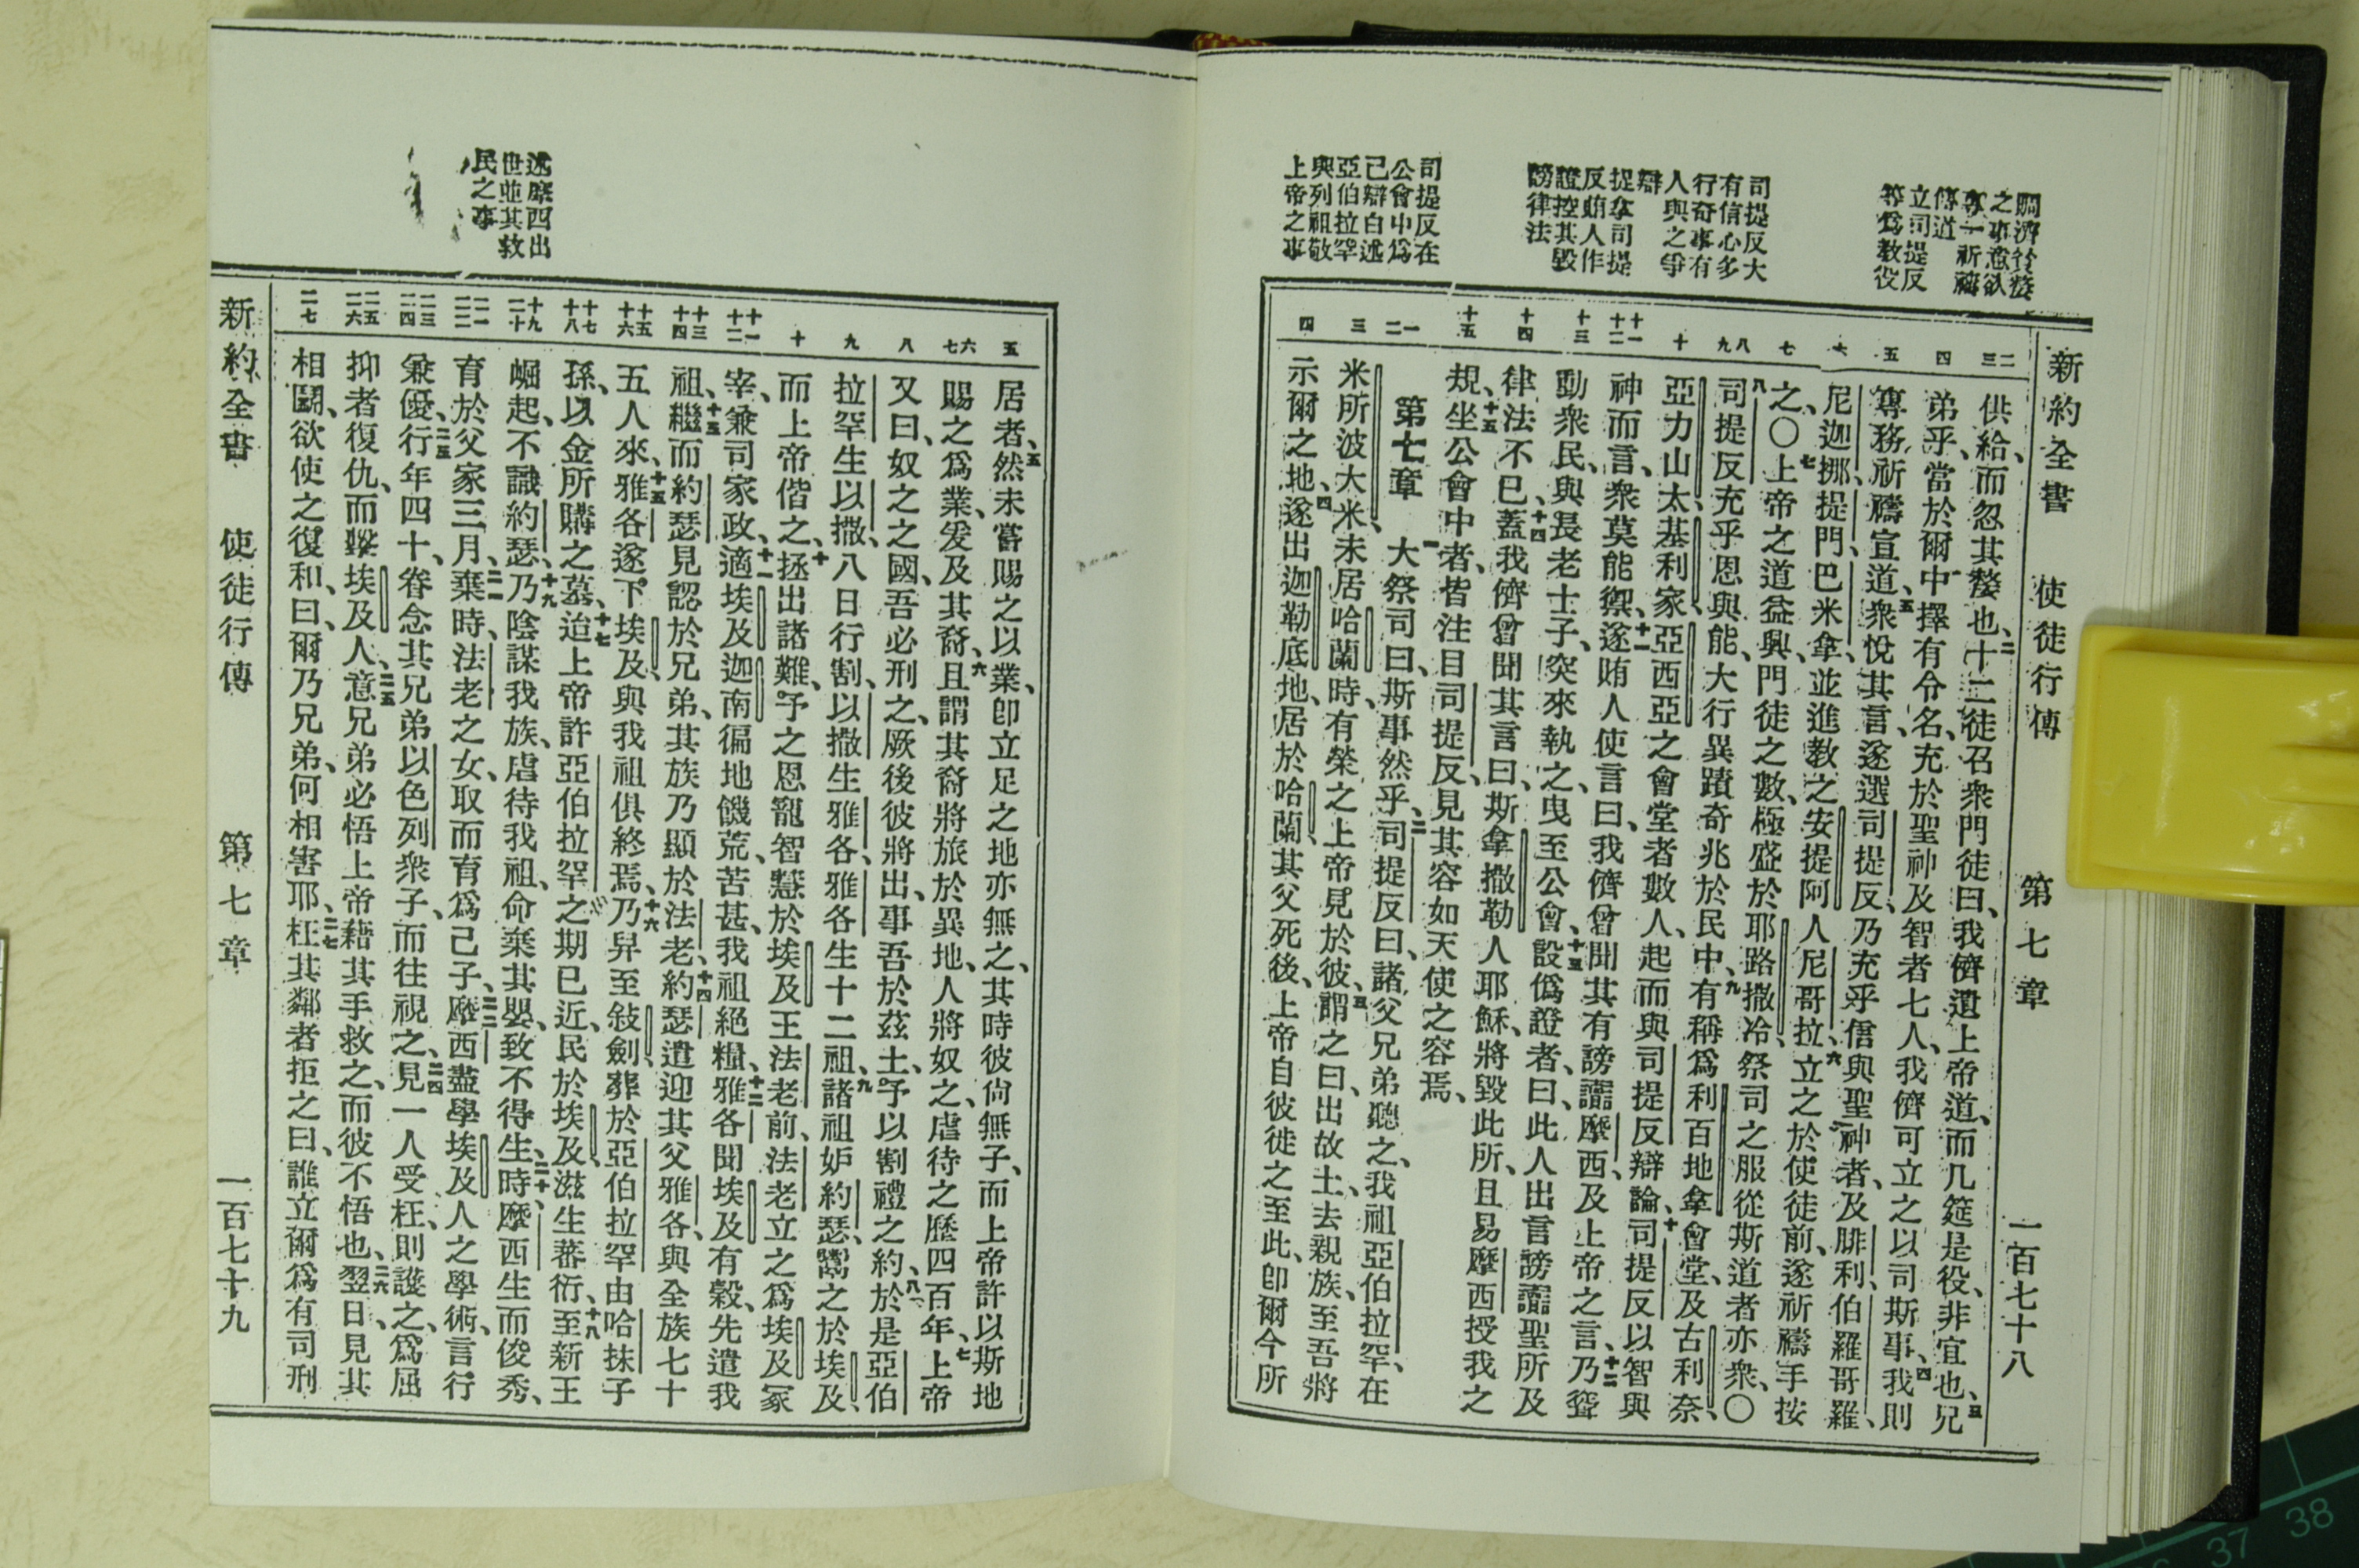 新約全書 使徒行傳 第七章 一百七十八
賙濟貧嫠
之事意欲
專一祈禱
傳道
立司提反
等爲教役
司提反大
有信心多
行奇事有
人與之爭
辯
捉拿司提
反賄人作
證控其毀
謗律法
司提反在
公會中爲
己辯白述
亞伯拉罕
與列祖敬
上帝之事
二三
四
五
六
七
八九
十
十一十二
十三
十四
十五
一二
三
四
供給、而忽其嫠也、二十二徒召衆門徒曰、我儕遺上帝道、而几筵是役、非宜也、三兄
弟乎、當於爾中擇有令名、充於聖神及智者七人、我儕可立之以司斯事、四我則
專務祈禱宣道、五衆悅其言、遂選司提反、乃充乎信與聖神者、及腓利、伯羅哥羅、
尼迦挪、提門、巴米拿、並進教之安提阿人尼哥拉、六立之於使徒前、遂祈禱手按
之、〇七上帝之道益興、門徒之數、極盛於耶路撒冷、祭司之服從斯道者亦衆、〇
八司提反充乎恩與能、大行異蹟奇兆於民中、九有稱爲利百地拿會堂、及古利奈、
亞力山太、基利家、亞西亞之會堂者數人、起而與司提反辯論、十司提反以智與
神而言、衆莫能禦、十一遂賄人使言曰、我儕曾聞其有謗讟摩西、及上帝之言、十二乃聳
動衆民、與長老士子、突來執之、曳至公會、十三設僞證者、曰、此人出言謗讟聖所及
律法不已、十四蓋我儕曾聞其言曰、斯拿撒勒人耶穌、將毀此所、且易摩西授我之
規、十五坐公會中者、皆注目司提反、見其容如天使之容焉、
第七章 一大祭司曰、斯事然乎、二司提反曰、諸父兄弟聽之、我祖亞伯拉罕、在
米所波大米、未居哈蘭時、有榮之上帝見於彼、三謂之曰、出故土、去親族、至吾將
示爾之地、四遂出迦勒底地、居於哈蘭、其父死後、上帝自彼徙之至此、卽爾今所
述摩西出
世並其救
民之事
五
六七
八
九
十
十一十二
十三十四
十五十六
十七十八
十九二十
二一二二
二三二四
二五二六
二七
居者、五然未嘗賜之以業、卽立足之地亦無之、其時彼尙無子、而上帝許以斯地
賜之爲業、爰及其裔、六且謂其裔將旅於異地、人將奴之、虐待之歷四百年、七上帝
又曰、奴之之國、吾必刑之、厥後彼將出、事吾於茲土、八予以割禮之約、於是亞伯
拉罕生以撒、八日行割、以撒生雅各、雅各生十二祖、九諸祖妒約瑟、鬻之於埃及、
而上帝偕之、十拯出諸難、予之恩寵智慧於埃及王法老前、法老立之爲埃及冢
宰、兼司家政、十一適埃及迦南徧地饑荒、苦甚、我祖絕糧、十二雅各聞埃及有穀、先遣我
祖、十三繼而約瑟見認於兄弟、其族乃顯於法老、十四約瑟遣迎其父雅各、與全族七十
五人來、十五雅各遂下埃及、與我祖俱終焉、十六乃舁至敍劍、葬於亞伯拉罕由哈抹子
孫、以金所購之墓、十七迨上帝許亞伯拉罕之期已近、民於埃及滋生蕃衍、十八至新王
崛起、不識約瑟、十九乃陰謀我族、虐待我祖、命棄其嬰、致不得生、二十時摩西生而俊秀、
育於父家三月、二一棄時、法老之女、取而育爲己子、二二摩西盡學埃及人之學術、言行
兼優、二三行年四十、眷念其兄弟以色列衆子、而往視之、二四見一人受枉、則護之、爲屈
抑者復仇、而擊埃及人、二五意兄弟必悟上帝藉其手救之、而彼不悟也、二六翌日、見其
相鬭、欲使之復和、曰、爾乃兄弟、何相害耶、二七枉其鄰者拒之曰、誰立爾爲有司刑
新約全書 使徒行傳 第七章 一百七十九
37 38